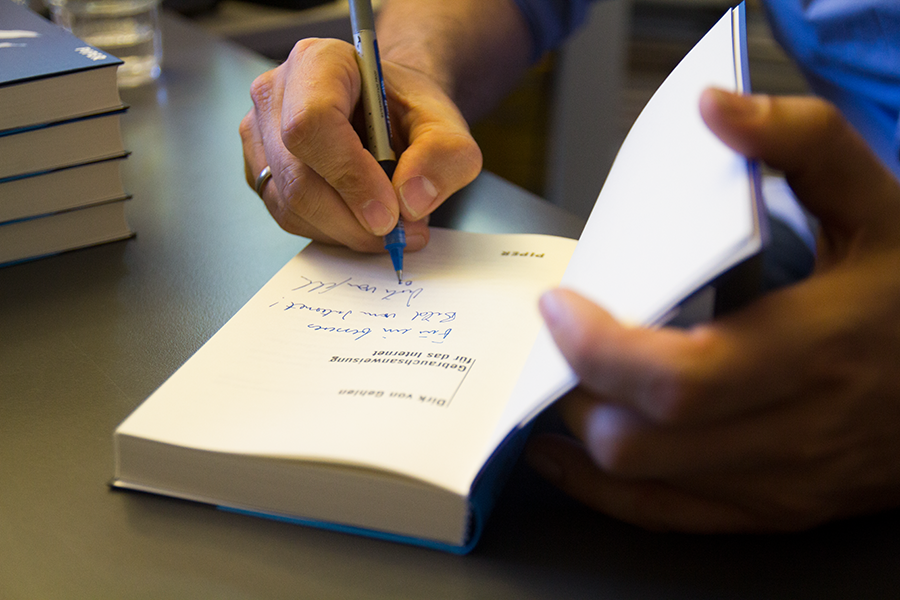 Dirk von Gehlen
Gebrauchsanweisung
für das Internet
Für ein besseres
Bild vom Internet!
PIPER
PIPER